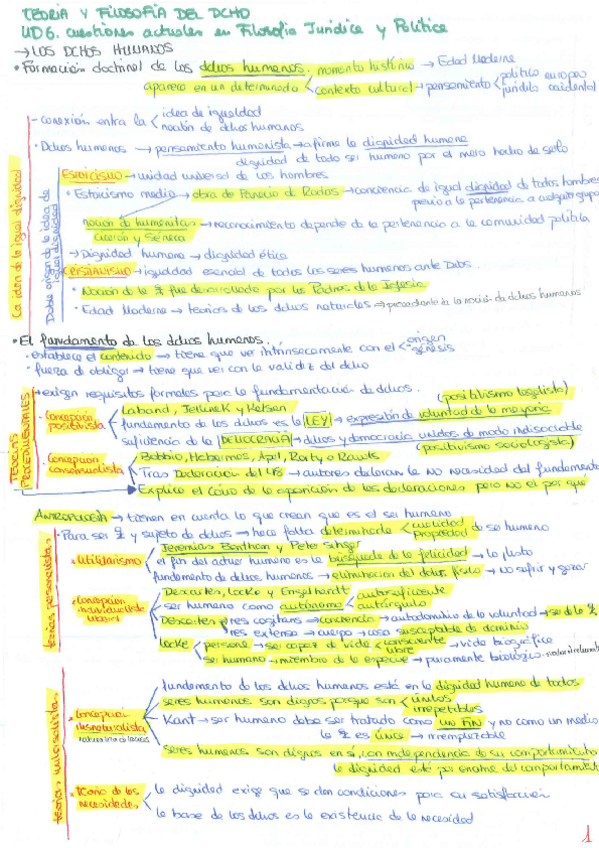 TEORIA Y FILOSOFÍA DEL DCHO
UD6. cuestiones actuales en Filosofía Jurídica y Política
→ LOS DCHOS HUMANOS
• Formación doctrinal de los dchos humanos, momento histórico → Edad Moderna
aparece en un determinado contexto cultural → pensamiento político europeo
jurídico occidental
La idea de la igual dignidad
- conexión entre la idea de igualdad
noción de dchos humanos
• Dchos humanos → pensamiento humanista → afirma la dignidad humana
dignidad de todo ser humano por el mero hecho de serlo
Doble origen de la idea de igual dignidad
ESTOICISMO → unidad universal de los hombres
• Estoicismo medio → obra de Panecio de Rodas → conciencia de igual dignidad de todos hombres
previo a la pertenencia a cualquier grupo
noción de humanitas → reconocimiento depende de la pertenencia a la comunidad política
Cicerón y Séneca
→ Dignidad humana → dignidad ética
CRISTIANISMO → igualdad esencial de todos los seres humanos ante Dios.
• Noción de la fue desarrollada por los Padres de la Iglesia
• Edad Moderna → teorías de los dchos naturales → procedente de la noción de dchos humanos
• El fundamento de los dchos humanos.
• establece el contenido → tiene que ver intrínsecamente con el origen
génesis
• fuerza de obligar → tiene que ver con la validez del dcho
TEORÍAS PROCEDIMENTALES
→ exigen requisitos formales para la fundamentación de dchos.
(positivismo legalista)
• Concepción positivista
Laband, Jellinek y Kelsen
fundamento de los dchos es la LEY → expresión de voluntad de la mayoría
suficiencia de la DEMOCRACIA → dchos y democracia unidos de modo indisociable
(positivismo sociologista)
• Concepción consensualista
Bobbio, Habermas, Apel, Rorty o Rawls
Tras Declaración del 48 → autores declaran la NO necesidad del fundamento
→ Explica el cómo de la aparición de las declaraciones pero no el por qué
ANTROPOLOGÍA → tienen en cuenta lo que crean que es el ser humano
teorías personistas
• Para ser y sujeto de dchos → hace falta determinada cualidad
propiedad de ser humano
• Utilitarismo
Jeremías Bentham y Peter Singer
el fin del actuar humano es la búsqueda de la felicidad → lo justo
fundamento de dchos humanos → eliminación del dolor físico → NO sufrir y gozar
• Concepción individualista liberal
Descartes, Locke y Engelhardt
ser humano como autónomo autosuficiente
autárquico
Descartes res cogitans → conciencia → autodominio de la voluntad → se es
res extensa → cuerpo → cosa susceptible de dominio
Locke persona → ser capaz de vida consciente
libre → vida biográfica
ser humano → miembro de la especie → puramente biológico
teorías universalistas
• Concepción iusnaturalista
fundamento de los dchos humanos está en la dignidad humana de todos
seres humanos son dignos porque son únicos
irrepetibles
Kant → ser humano debe ser tratado como un FIN y no como un medio
la es única → irremplazable
seres humanos son dignos en sí, con independencia de su comportamiento
la dignidad está por encima del comportamiento
• Teoría de las necesidades
la dignidad exige que se den condiciones para su satisfacción
la base de los dchos es la existencia de la necesidad
1